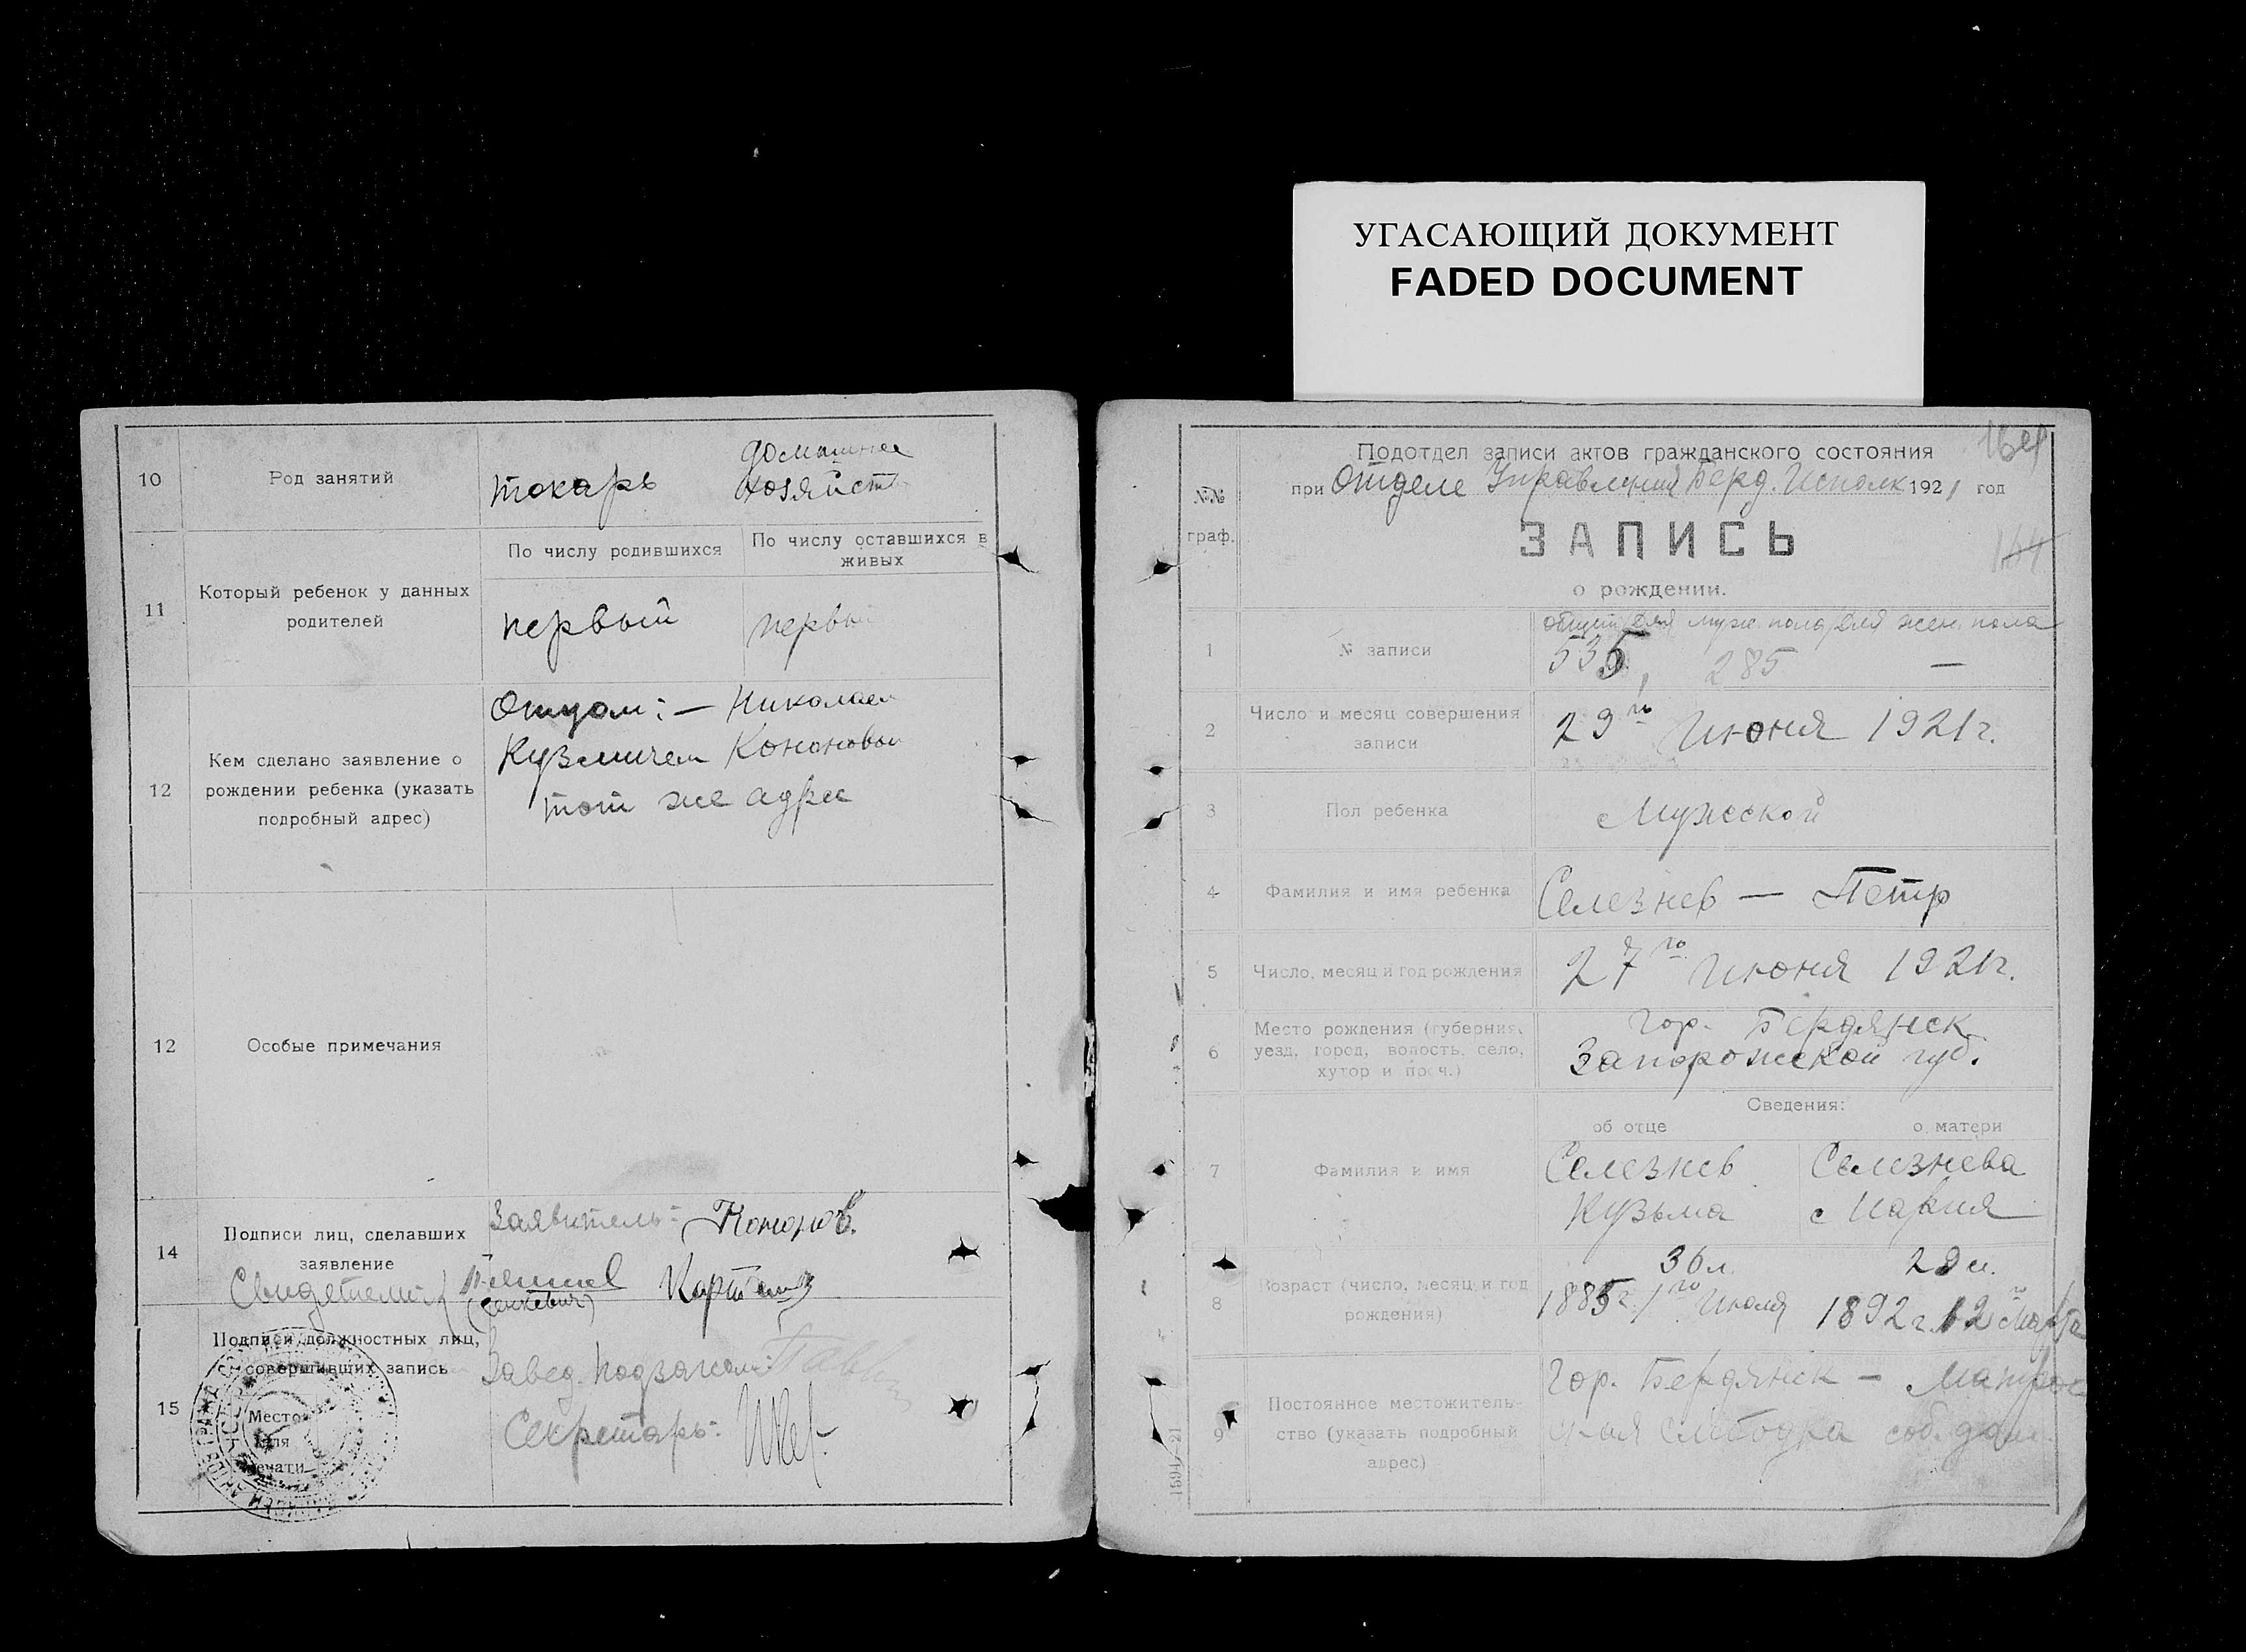 УГАСАЮЩИЙ ДОКУМЕНТ
FADED DOCUMENT
10
Род занятий
токарь
домашнее
хозяйств
11
Который ребенок у данных
родителей
По числу родившихся
По числу оставшихся в
живых
первый
первый
12
Кем сделано заявление о
рождении ребенка (указать
подробный адрес)
Отцом: — Николаем
Кузмичем Кононовым
тот же адрес
12
Особые примечания
14
Подписи лиц, сделавших
заявление
Заявитель: Кононов.
Свидетели:
15
Подписи должностных лиц,
совершивших запись
Место
для
печати
Завед. подзагсом:
Секретарь:
Подотдел записи актов гражданского состояния
при Отделе Управления Берд. Исполк 1921 год
№№
граф.
164
134
ЗАПИСЬ
о рождении.
1
№ записи
общий для муж. пола для жен. пола
535, 285 —
2
Число и месяц совершения
записи
29го Июня 1921г.
3
Пол ребенка
Мужской
4
Фамилия и имя ребенка
Селезнев — Петр
5
Число, месяц и год рождения
27го Июня 1921г.
6
Место рождения (губерния,
уезд, город, волость, село,
хутор и проч.)
гор. Бердянск
Запорожской губ.
Сведения:
об отце
о матери
7
Фамилия и имя
Селезнев
Кузьма
Селезнева
Мария
8
Возраст (число, месяц и год
рождения)
36 л.
1885г. 1го Июля
29 л.
1892г. 12го Марта
9
Постоянное местожитель-
ство (указать подробный
адрес)
Гор. Бердянск — Матрос
ская слободка соб. дом
1594—21